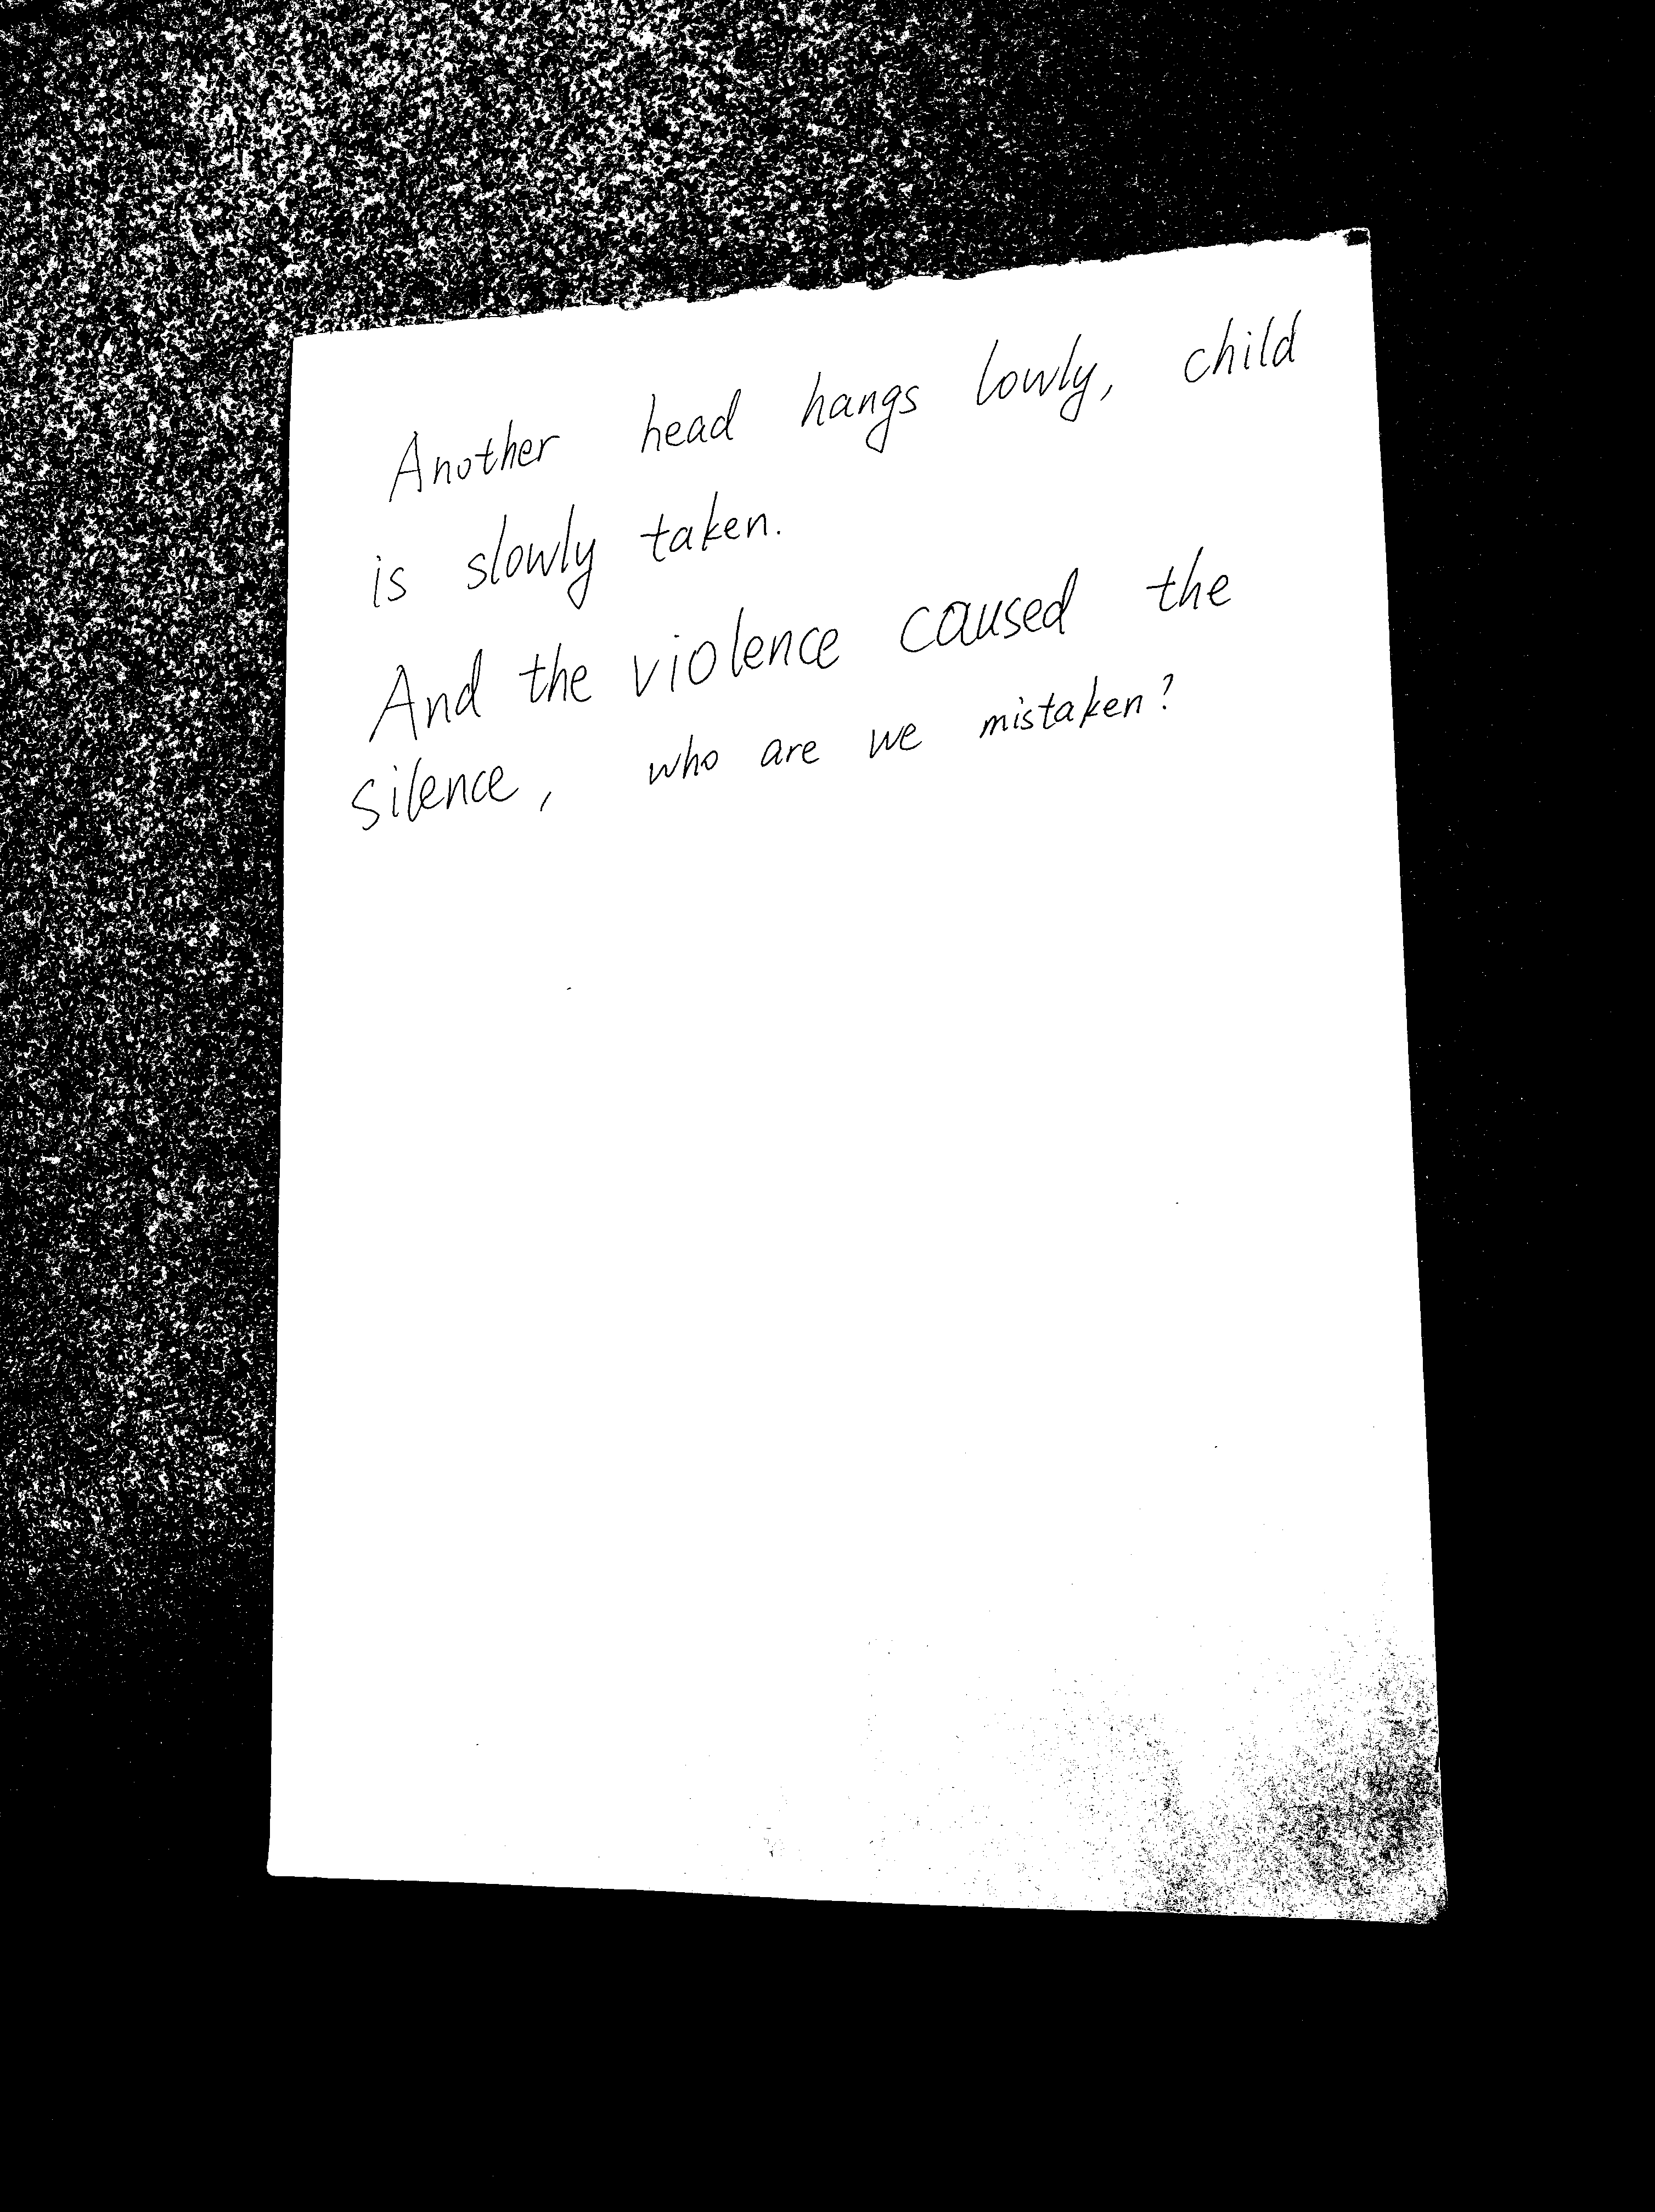 Another head hangs lowly, child
is slowly taken.
And the violence caused the
silence, who are we mistaken?